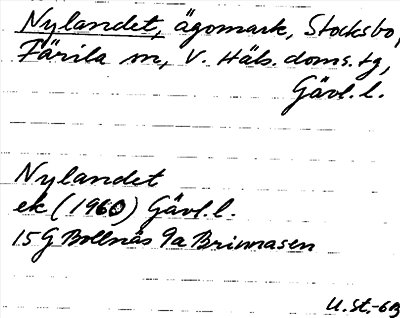 Nylandet, ägomark, Stocksbo,
Färila sn, V. Häls. doms. tg,
Gävl. l.
Nylandet
ek (1960) Gävl. l.
15 G Bollnäs 9a Brinnåsen
U. St. -63